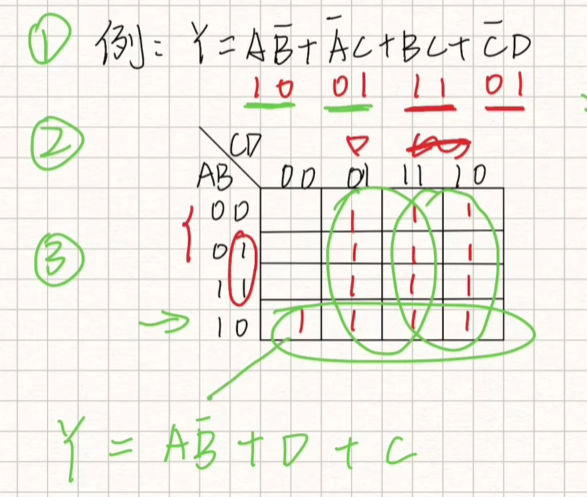 ① 例: Y = AB̅ + A̅C + BC + C̅D
10 01 11 01
②
CD
AB 00 01 11 10
00 1 1 1
③ 01 1 1 1
11 1 1 1
→ 10 1 1 1 1
Y = AB̅ + D + C